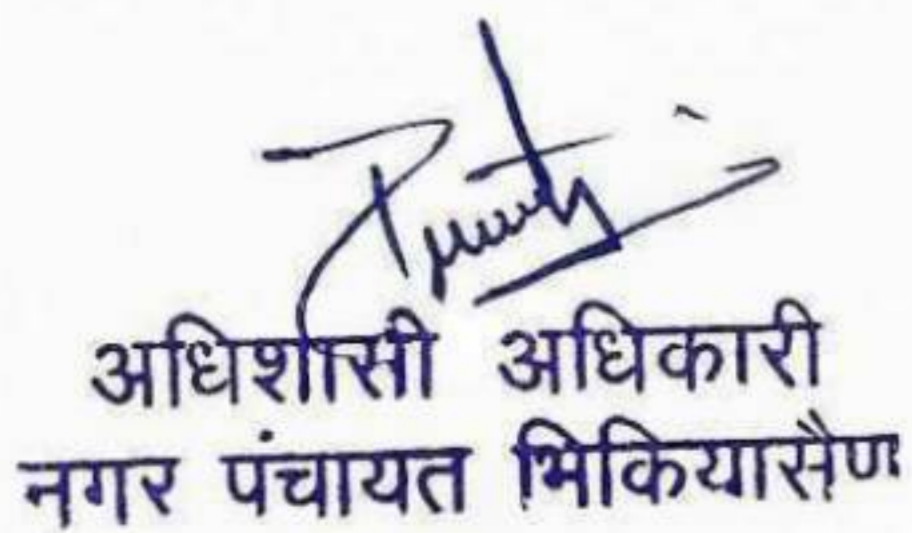 अधिशासी अधिकारी
नगर पंचायत भिकियासैण